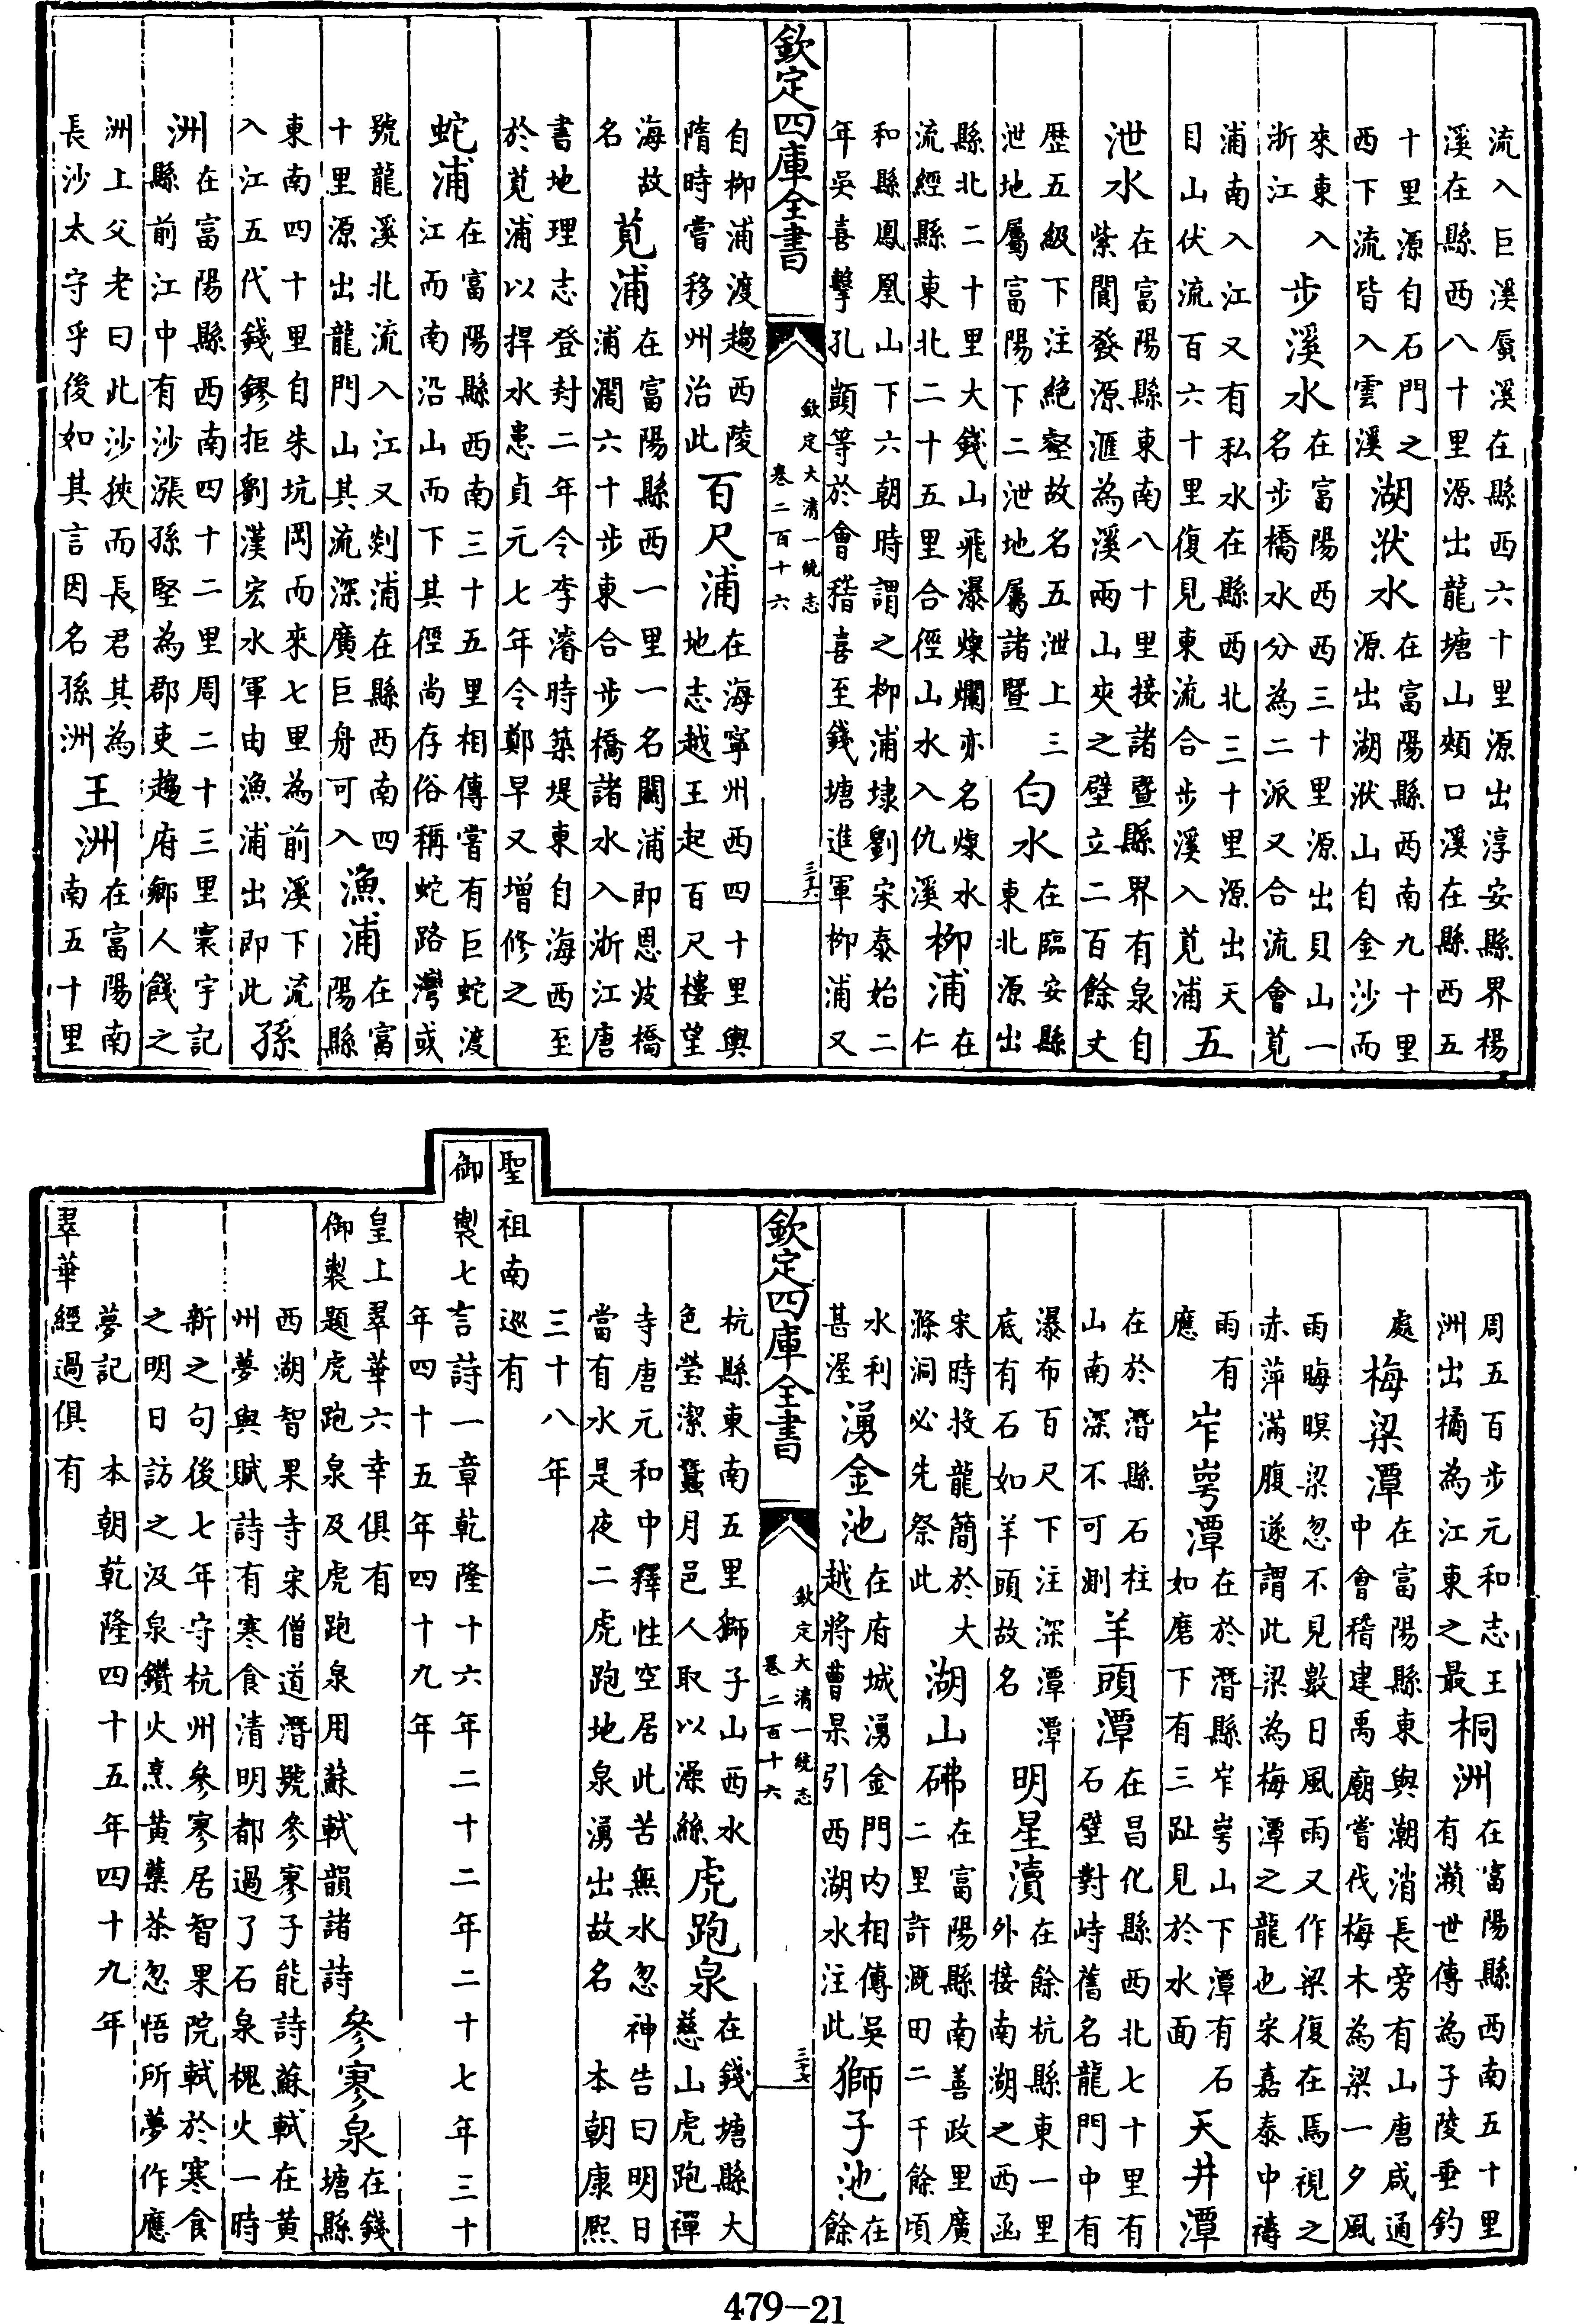 流入巨溪蜃溪在縣西六十里源出淳安縣界楊
溪在縣西八十里源出龍塘山頰口溪在縣西五
十里源自石門之
西下流皆入雲溪湖洑水在富陽縣西南九十里
源出湖洑山自金沙而
來東入
浙江步溪水在富陽西西三十里源出貝山一
名步橋水分為二派又合流會莧
浦南入江又有私水在縣西北三十里源出天
目山伏流百六十里復見東流合步溪入莧浦五
泄水在富陽縣東南八十里接諸暨縣界有泉自
紫閬發源滙為溪兩山夾之壁立二百餘丈
歴五級下注絶壑故名五泄上三
泄地屬富陽下二泄地屬諸暨白水在臨安縣
東北源出
縣北二十里大錢山飛瀑燦爛亦名燦水
流經縣東北二十五里合徑山水入仇溪柳浦在
仁
和縣鳳凰山下六朝時謂之柳浦埭劉宋泰始二
年吳喜擊孔顗等於會稽喜至錢塘進軍柳浦又
欽定四庫全書
欽定大清一統志
卷二百十六
三十六
自柳浦渡趨西陵
隋時嘗移州治此百尺浦在海寧州西四十里輿
地志越王起百尺樓望
海故
名莧浦在富陽縣西一里一名闗浦即恩波橋
浦濶六十步東合步橋諸水入浙江唐
書地理志登封二年令李濬時築堤東自海西至
於莧浦以捍水患貞元七年令鄭早又增修之
蛇浦在富陽縣西南三十五里相傳嘗有巨蛇渡
江而南沿山而下其徑尚存俗稱蛇路灣或
號龍溪北流入江又剡浦在縣西南四
十里源出龍門山其流深廣巨舟可入漁浦在富
陽縣
東南四十里自朱坑岡而來七里為前溪下流
入江五代錢鏐拒劉漢宏水軍由漁浦出即此孫
洲在富陽縣西南四十二里周二十三里寰宇記
縣前江中有沙漲孫堅為郡吏趨府鄉人餞之
洲上父老曰此沙狹而長君其為
長沙太守乎後如其言因名孫洲王洲在富陽南
南五十里
周五百步元和志王
洲出橘為江東之最桐洲在富陽縣西南五十里
有瀨世傳為子陵垂釣
處梅梁潭在富陽縣東與潮消長旁有山唐咸通
中會稽建禹廟嘗伐梅木為梁一夕風
雨晦暝梁忽不見數日風雨又作梁復在焉視之
赤萍滿腹遂謂此梁為梅潭之龍也宋嘉泰中禱
雨有
應岝崿潭在於潛縣岝崿山下潭有石
如磨下有三趾見於水面天井潭
在於潛縣石柱
山南深不可測羊頭潭在昌化縣西北七十里有
石壁對峙舊名龍門中有
瀑布百尺下注深潭潭
底有石如羊頭故名明星瀆在餘杭縣東一里
外接南湖之西函
宋時投龍簡於大
滌洞必先祭此湖山砩在富陽縣南善政里廣
二里許溉田二千餘頃
水利
甚渥湧金池在府城湧金門内相傳吳
越將曹杲引西湖水注此獅子池在
餘
欽定四庫全書
欽定大清一統志
卷二百十六
三十七
杭縣東南五里獅子山西水
色瑩潔蠶月邑人取以澡絲虎跑泉在錢塘縣大
慈山虎跑禪
寺唐元和中釋性空居此苦無水忽神告曰明日
當有水是夜二虎跑地泉湧出故名 本朝康熙
三十八年
聖祖南巡有
御製七言詩一章乾隆十六年二十二年二十七年三十
年四十五年四十九年
皇上翠華六幸俱有
御製題虎跑泉及虎跑泉用蘇軾韻諸詩參寥泉在錢
塘縣
西湖智果寺宋僧道潛號參寥子能詩蘇軾在黃
州夢與賦詩有寒食清明都過了石泉槐火一時
新之句後七年守杭州參寥居智果院軾於寒食
之明日訪之汲泉鑽火烹黃蘗茶忽悟所夢作應
夢記 本朝乾隆四十五年四十九年
翠華經過俱有
479—21